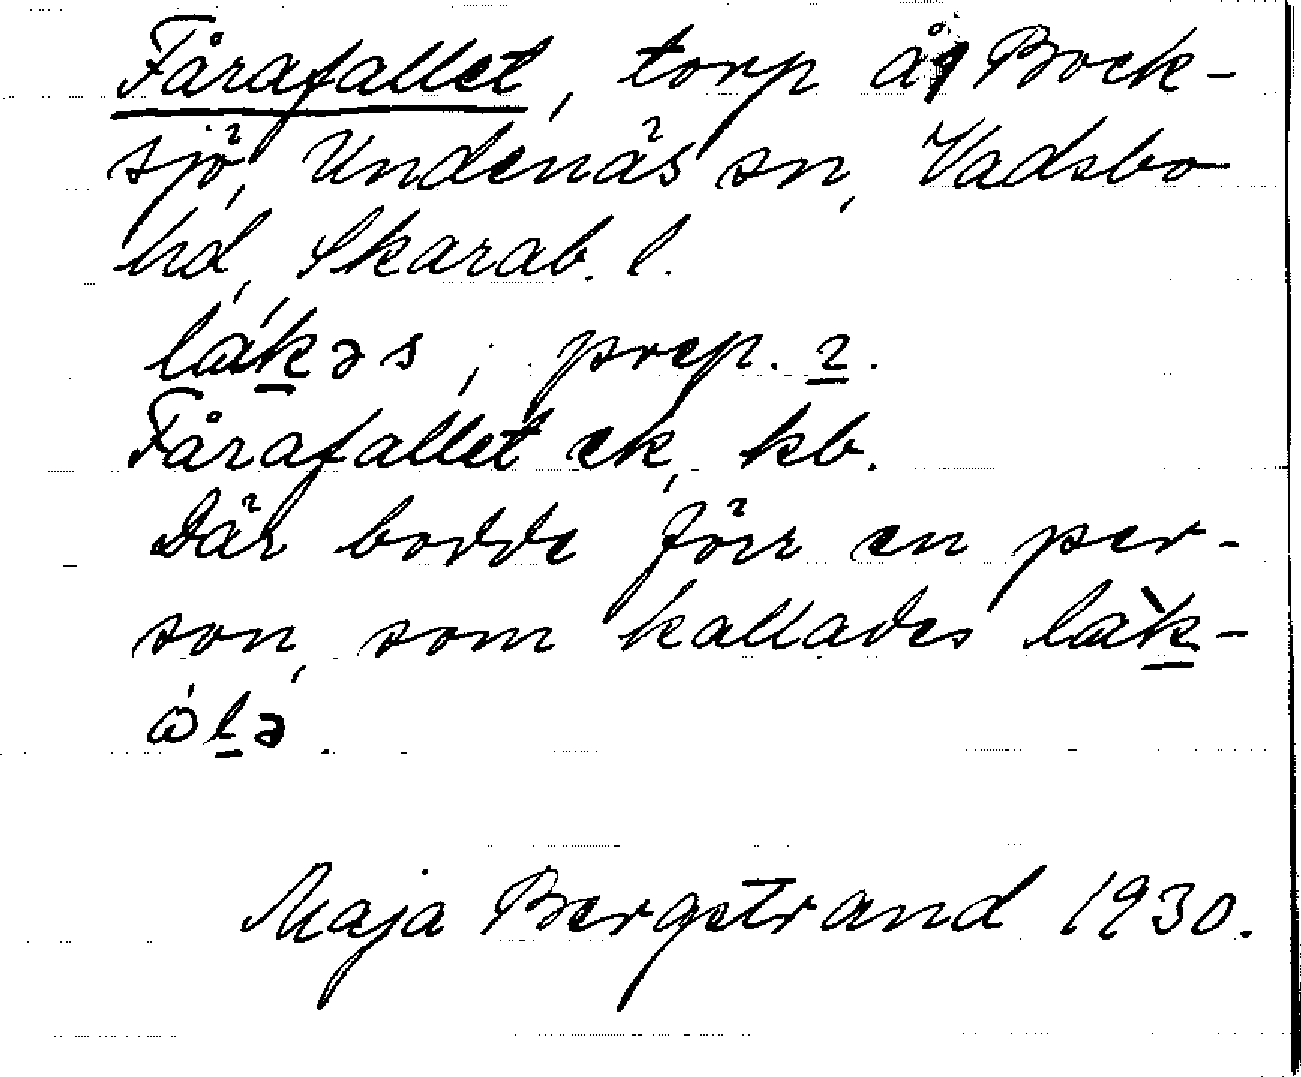 Fårafallet, torp å Bock-
sjö, Undenäs sn, Vadsbo
hd, Skarab. l.
lák̲əs, prep. 2.
Fårafallet ek, kb.
Där bodde förr en per-
son, som kallades làk̲-
ál̲ə.
Maja Bergstrand 1930.